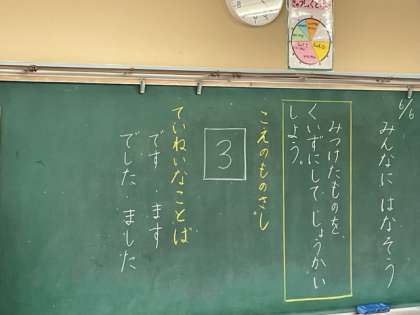 6/6
みんなに はなそう
みつけたものを
くいずにして じょうかい
しよう。
こえのものさし
3
ていねいなことば
です．ます
でした．ました